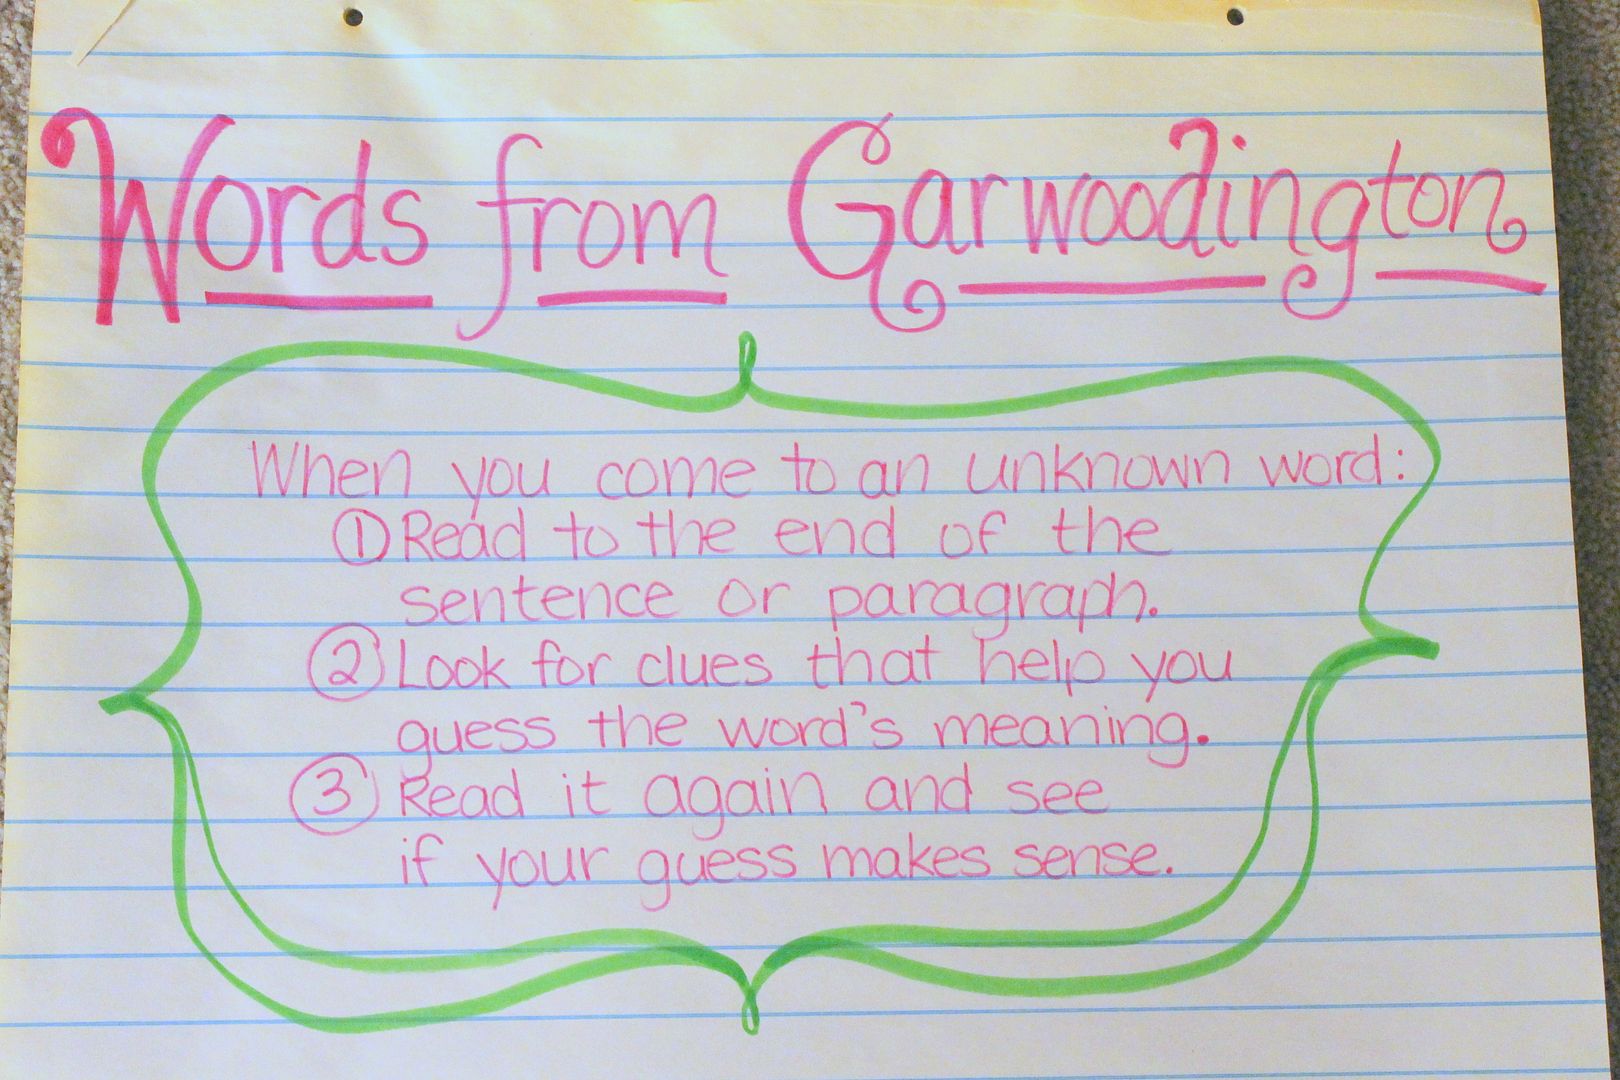 Words from Garwoodington
When you come to an unknown word:
① Read to the end of the
sentence or paragraph.
② Look for clues that help you
guess the word's meaning.
③ Read it again and see
if your guess makes sense.